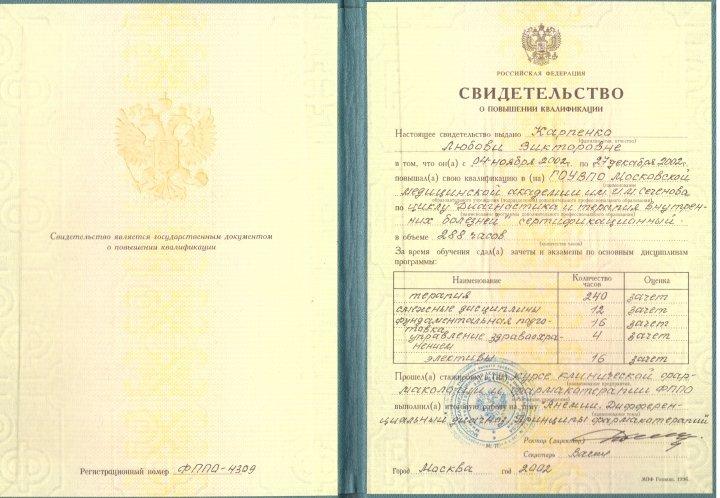 Свидетельство является государственным документом
о повышении квалификации
Регистрационный номер ФППО-4309
РОССИЙСКАЯ ФЕДЕРАЦИЯ
СВИДЕТЕЛЬСТВО
О ПОВЫШЕНИИ КВАЛИФИКАЦИИ
Настоящее свидетельство выдано Карпенко
Любови Викторовне
(фамилия, имя, отчество)
в том, что он(а) с 04 ноября 2002г. по 27 декабря 2002г.
повышал(а) свою квалификацию в (на) ГОУВПО Московской
медицинской академии им. И.М. Сеченова
по циклу Диагностика и терапия внутрен-
них болезней сертификационный.
в объеме 288 часов
(количество часов)
За время обучения сдал(а) зачеты и экзамены по основным дисциплинам
программы:
Наименование Количество часов Оценка
терапия 240 зачет
смежные дисциплины 12 зачет
фундаментальная подго-
товка 16 зачет
управление здравоохра- 4 зачет
нением
элективы 16 зачет
Прошел(а) стажировку в (на) курсе клинической фар-
макологии и фармакотерапии ФППО
выполнил(а) итоговую работу на тему Анемии. Дифферен-
циальный диагноз. Принципы фармакотерапии
Ректор (директор)
Секретарь
Город Москва год 2002
М.П.
МПФ Гознак. 1996.